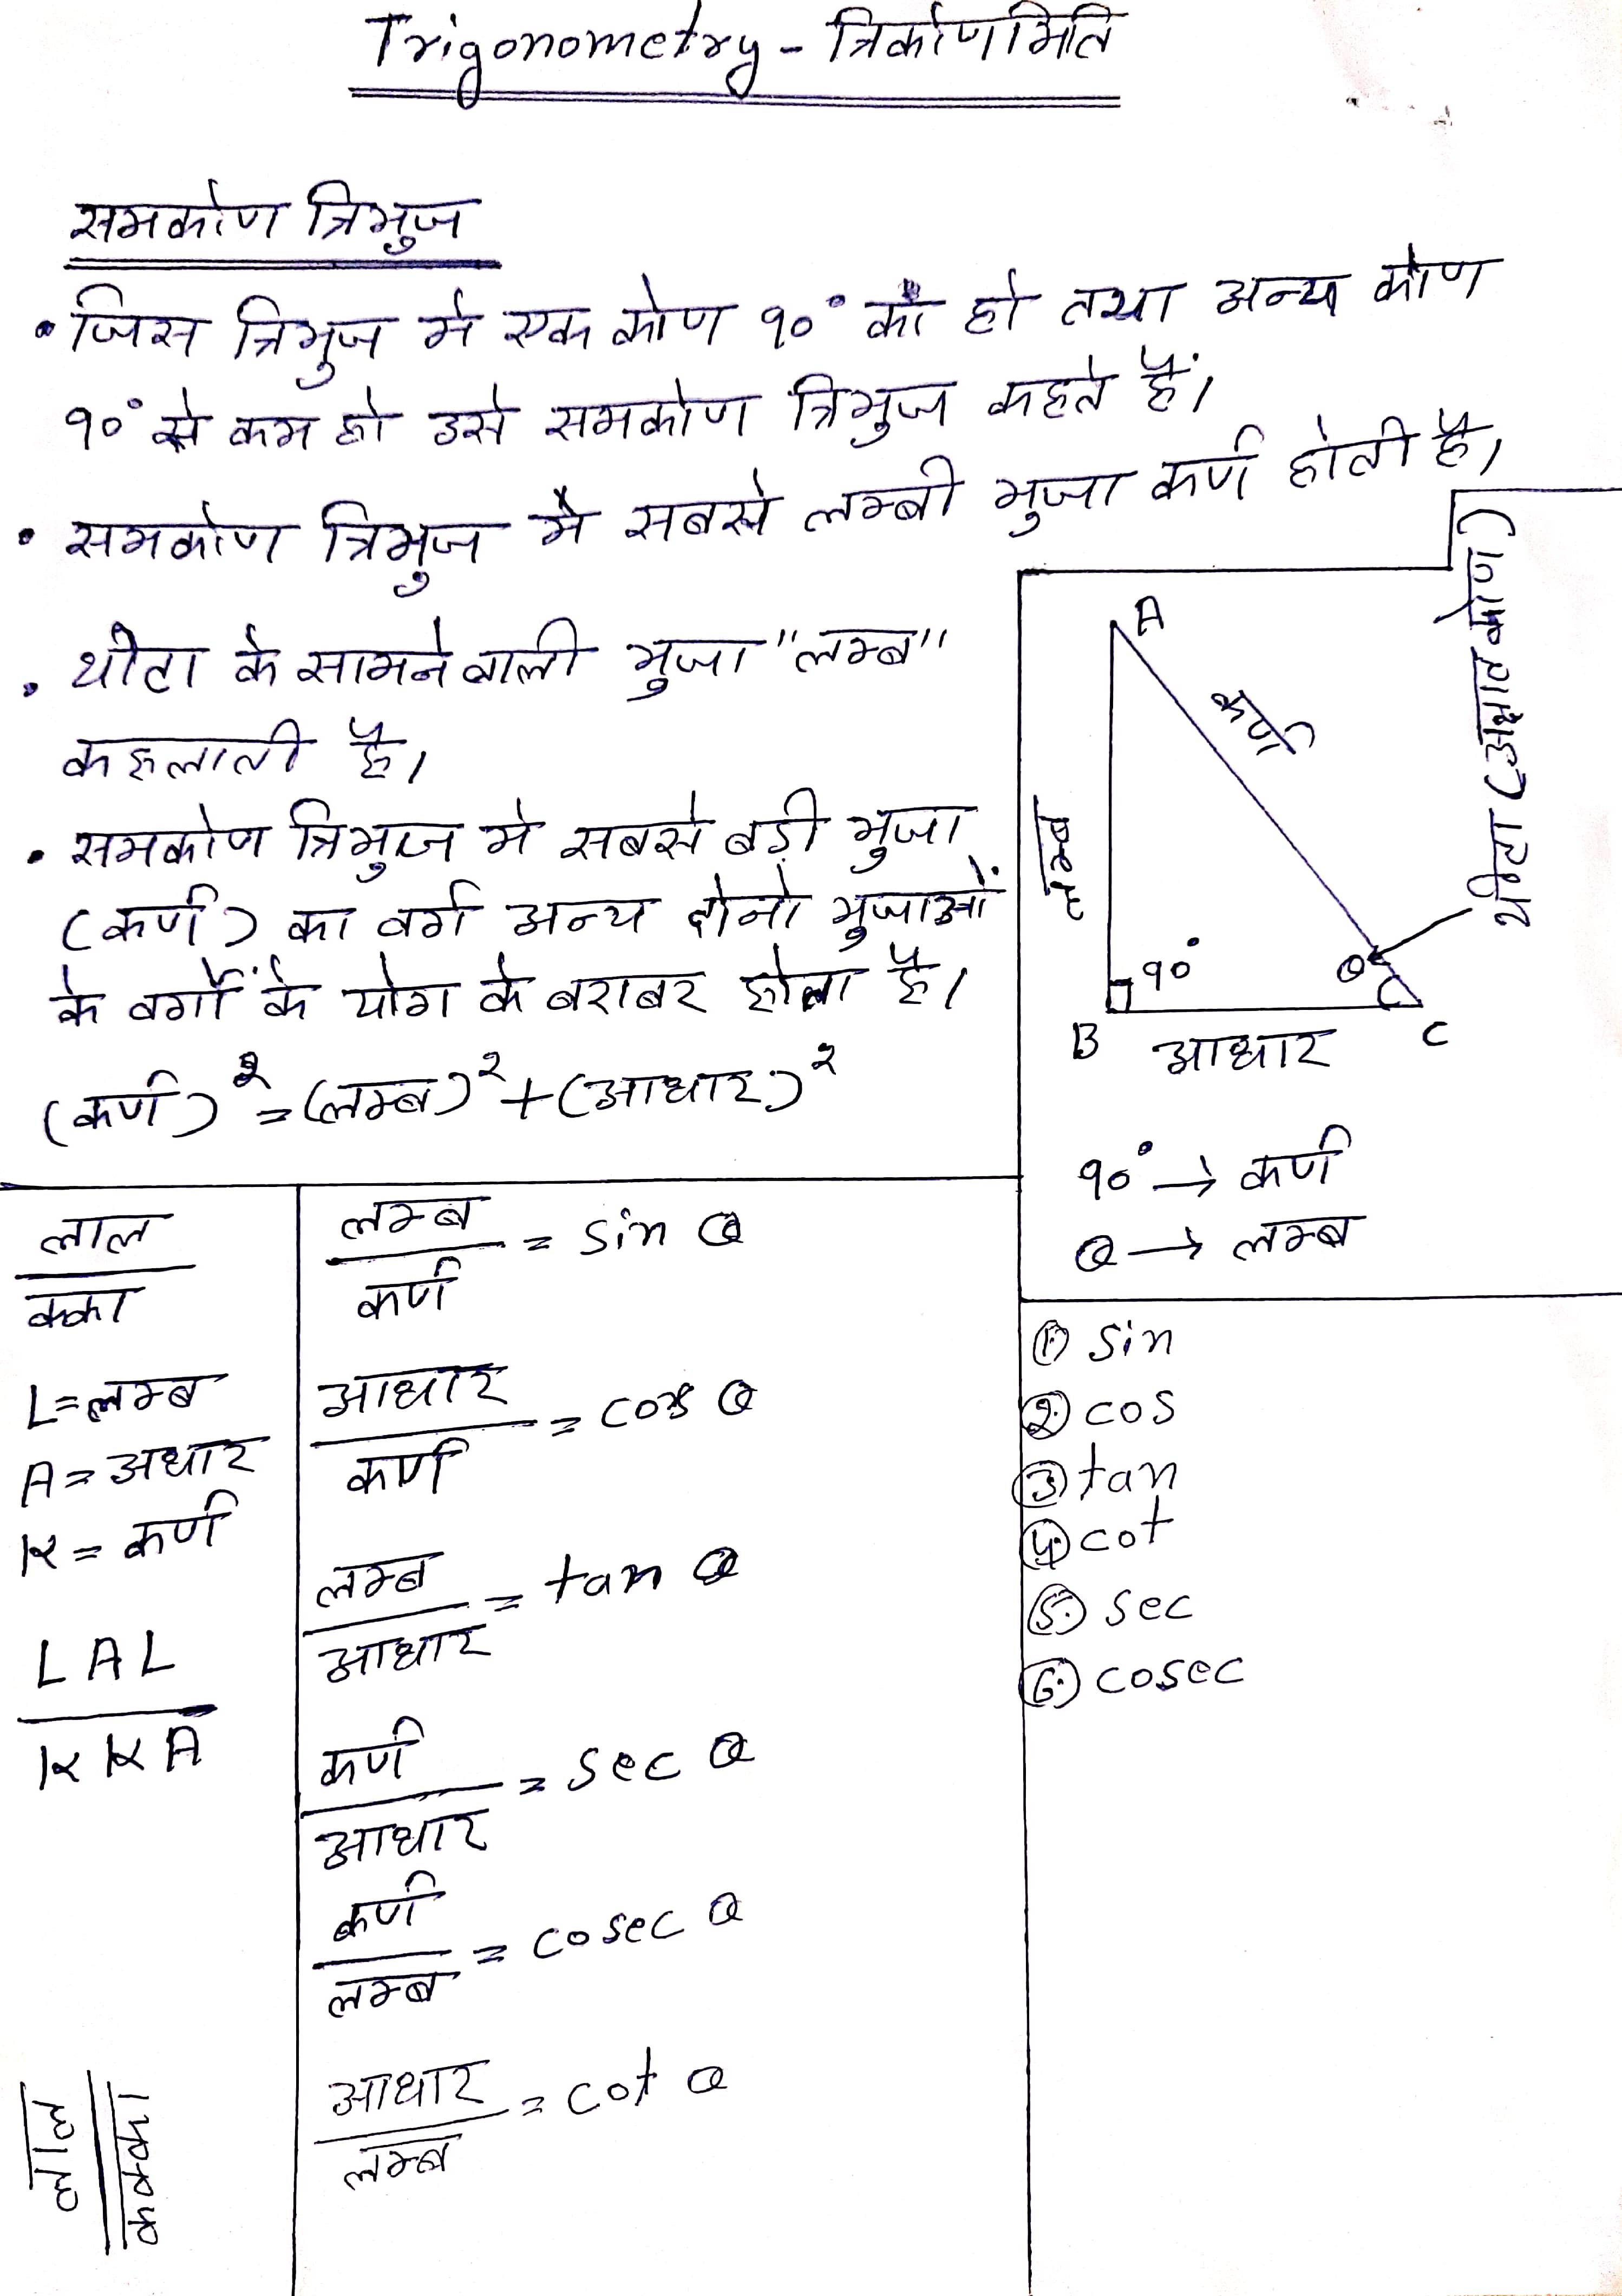 Trigonometry - त्रिकोणमिति
समकोण त्रिभुज
• जिस त्रिभुज मे एक कोण 90° का हो तथा अन्य कोण
90° से कम हो उसे समकोण त्रिभुज कहते हैं।
• समकोण त्रिभुज मै सबसे लम्बी भुजा कर्ण होती है।
• थीटा के सामने वाली भुजा "लम्ब"
कहलाती है।
• समकोण त्रिभुज मे सबसे बड़ी भुजा
(कर्ण) का वर्ग अन्य दोनो भुजाओं
के वर्गों के योग के बराबर होता है।
(कर्ण)² = (लम्ब)² + (आधार)²
A
कर्ण
लम्ब
थीटा (अज्ञात कोण)
90°
θ
B
आधार
C
90° → कर्ण
θ → लम्ब
लाल
कक्का
L = लम्ब
A = अधार
K = कर्ण
LAL
KKA
लाल
कक्का
लम्ब
कर्ण = sin θ
आधार
कर्ण = cos θ
लम्ब
आधार = tan θ
कर्ण
आधार = sec θ
कर्ण
लम्ब = cosec θ
आधार
लम्ब = cot θ
① sin
② cos
③ tan
④ cot
⑤ sec
⑥ cosec